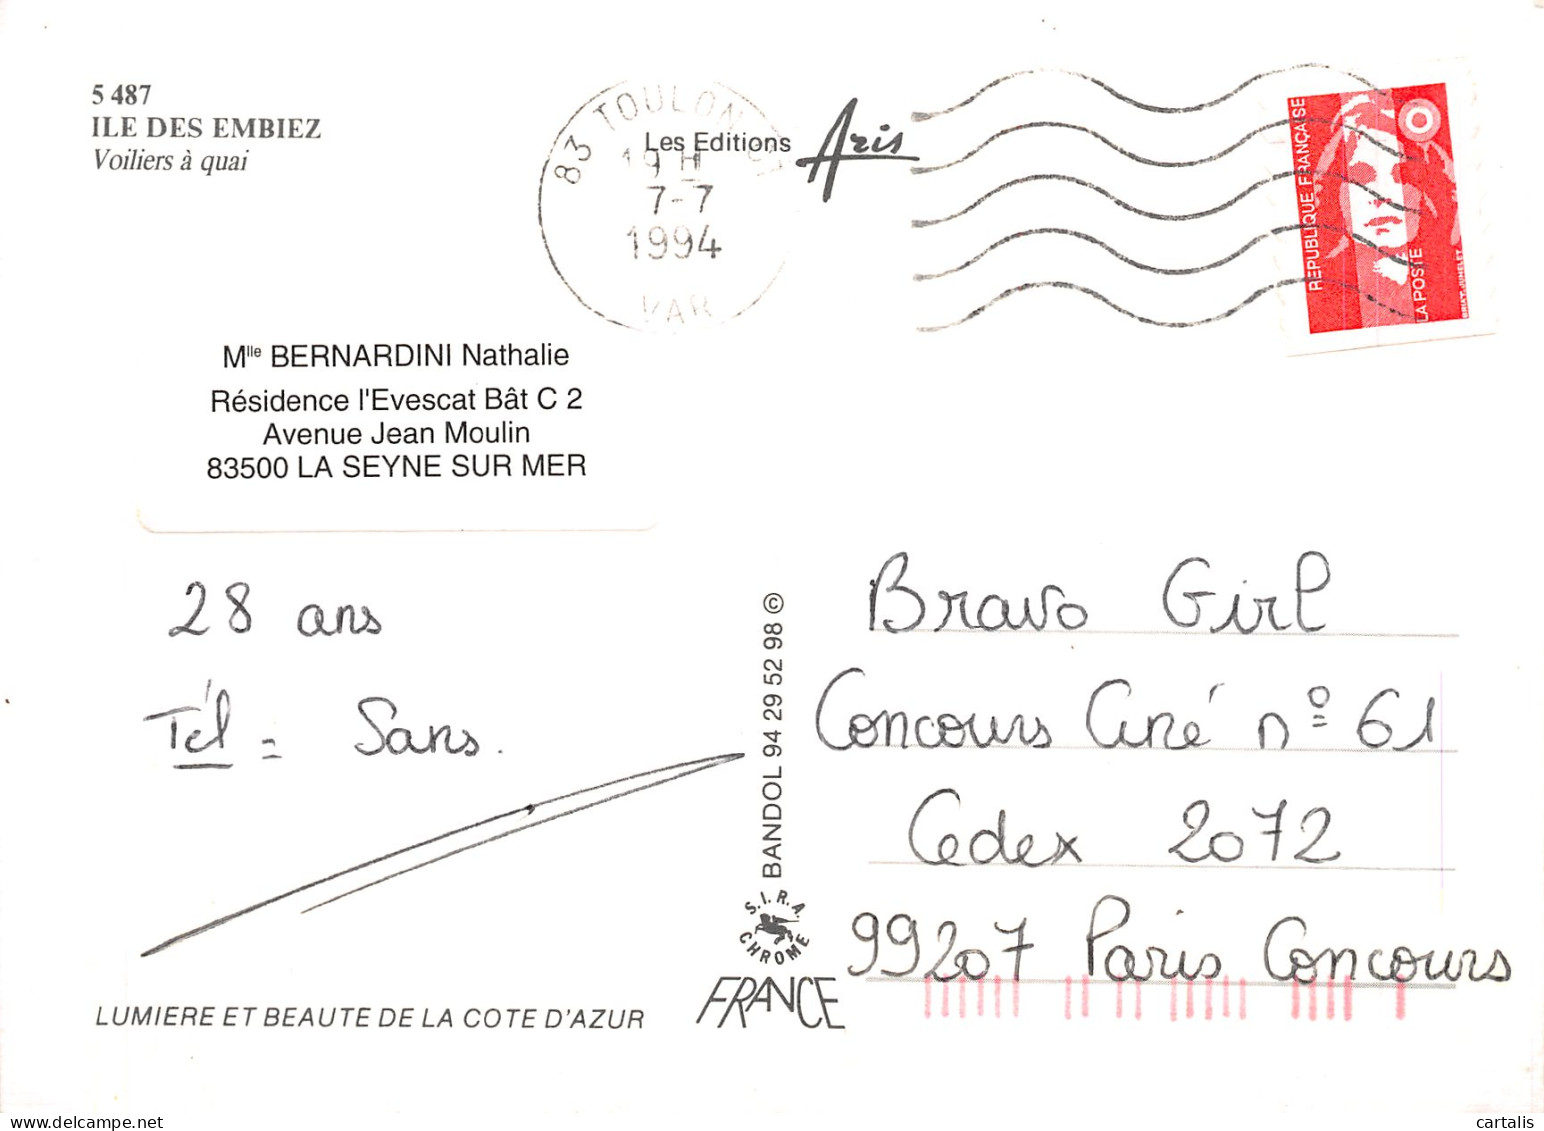 5 487
ILE DES EMBIEZ
Voiliers à quai
83 TOULON
19 H
7-7
1994
VAR
Les Editions Aris
REPUBLIQUE FRANÇAISE
LA POSTE
BRIAT-JUMELET
Mlle BERNARDINI Nathalie
Résidence l'Evescat Bât C 2
Avenue Jean Moulin
83500 LA SEYNE SUR MER
28 ans
Tél = Sans.
BANDOL 94 29 52 98 ©
S.I.R.A.
CHROME
FRANCE
LUMIERE ET BEAUTE DE LA COTE D'AZUR
Bravo Girl
Concours Ciné nº 61
Cedex 2072
99207 Paris Concours
cartalis